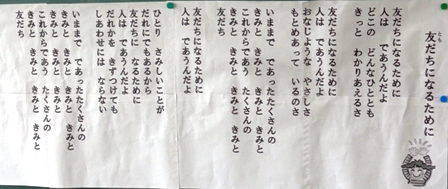 友だちになるために
とも
友だちになるために
人は であうんだよ
どこの どんなひととも
きっと わかりあえるさ
友だちになるために
人は であうんだよ
おなじような やさしさ
もとめあって いるのさ
いままで であったたくさんの
きみと きみと きみと きみと
これからであう たくさんの
きみと きみと きみと きみと
友だち
友だちになるために
人は であうんだよ
ひとり さみしいことが
だれにでもあるから
友だちになるために
人は であうんだよ
だれかを きずつけても
しあわせには ならない
いままで であったたくさんの
きみと きみと きみと きみと
これからであう たくさんの
きみと きみと きみと きみと
友だち